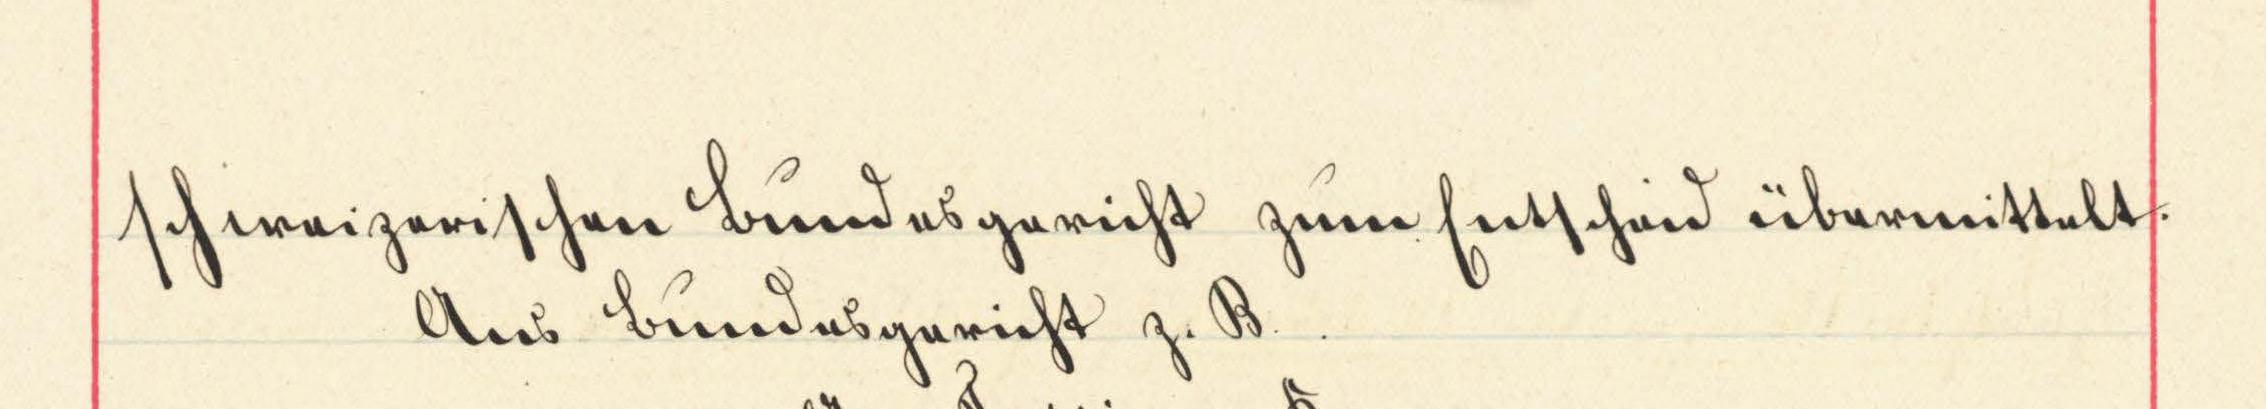 schweizerischen Bundesgericht zum Entscheid übermittelt.
Ans Bundesgericht z. B.